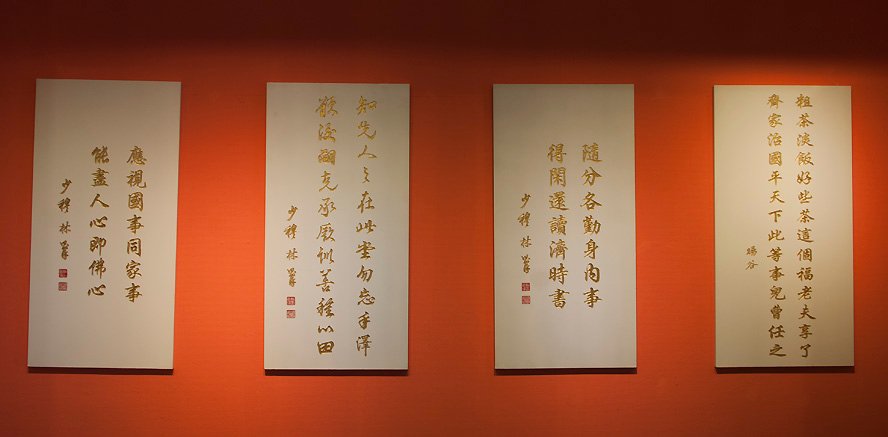 粗茶淡飯好些茶這個福老夫享了
齊家治國平天下此等事兒曹任之
暘谷
隨分各勤身內事
得閑還讀濟時書
少穆林則徐
知先人之在此堂勿忘手澤
欲後嗣克承厥訓善種心田
少穆林則徐
應視國事同家事
能盡人心即佛心
少穆林則徐